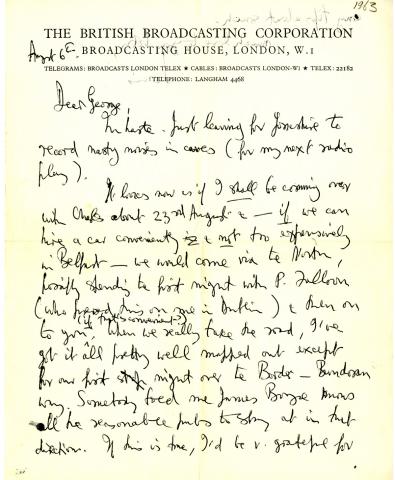 1963
THE BRITISH BROADCASTING CORPORATION
August 6th
BROADCASTING HOUSE, LONDON, W.1
TELEGRAMS: BROADCASTS LONDON TELEX ★ CABLES: BROADCASTS LONDON-W1 ★ TELEX: 22182
TELEPHONE: LANGHAM 4468
Dear George,
In haste. Just leaving for Yorkshire to
record nasty noises in caves (for my next radio
play).
It looks now as if I shall be coming over
with Charles about 23rd August & — if we can
hire a car conveniently & not too expensively
in Belfast — we would come via the North,
possibly spending the first night with P.
(who me in Dublin) & then on
to you (if that's convenient). When we really take the road, I've
got it all pretty well mapped out except
for our first night over the Border — Bundoran
way. Somebody told me James Boyce knows
all the reasonable pubs to stay at in that
direction. If this is true, I'd be v. grateful for